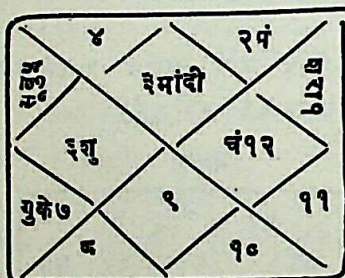 ४ २मं
३मांदी
शरा१
६शु चं१२
गुके७ ९ ११
८ १०